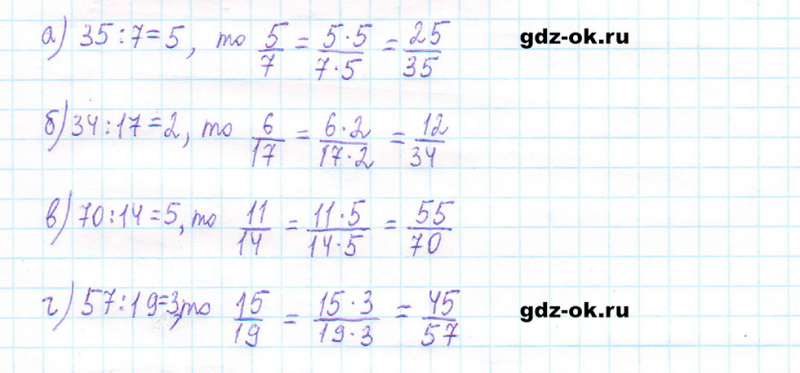 а) 35:7=5, то 5/7 = 5·5/7·5 = 25/35 gdz-ok.ru
б) 34:17=2, то 6/17 = 6·2/17·2 = 12/34
в) 70:14=5, то 11/14 = 11·5/14·5 = 55/70
г) 57:19=3, то 15/19 = 15·3/19·3 = 45/57 gdz-ok.ru